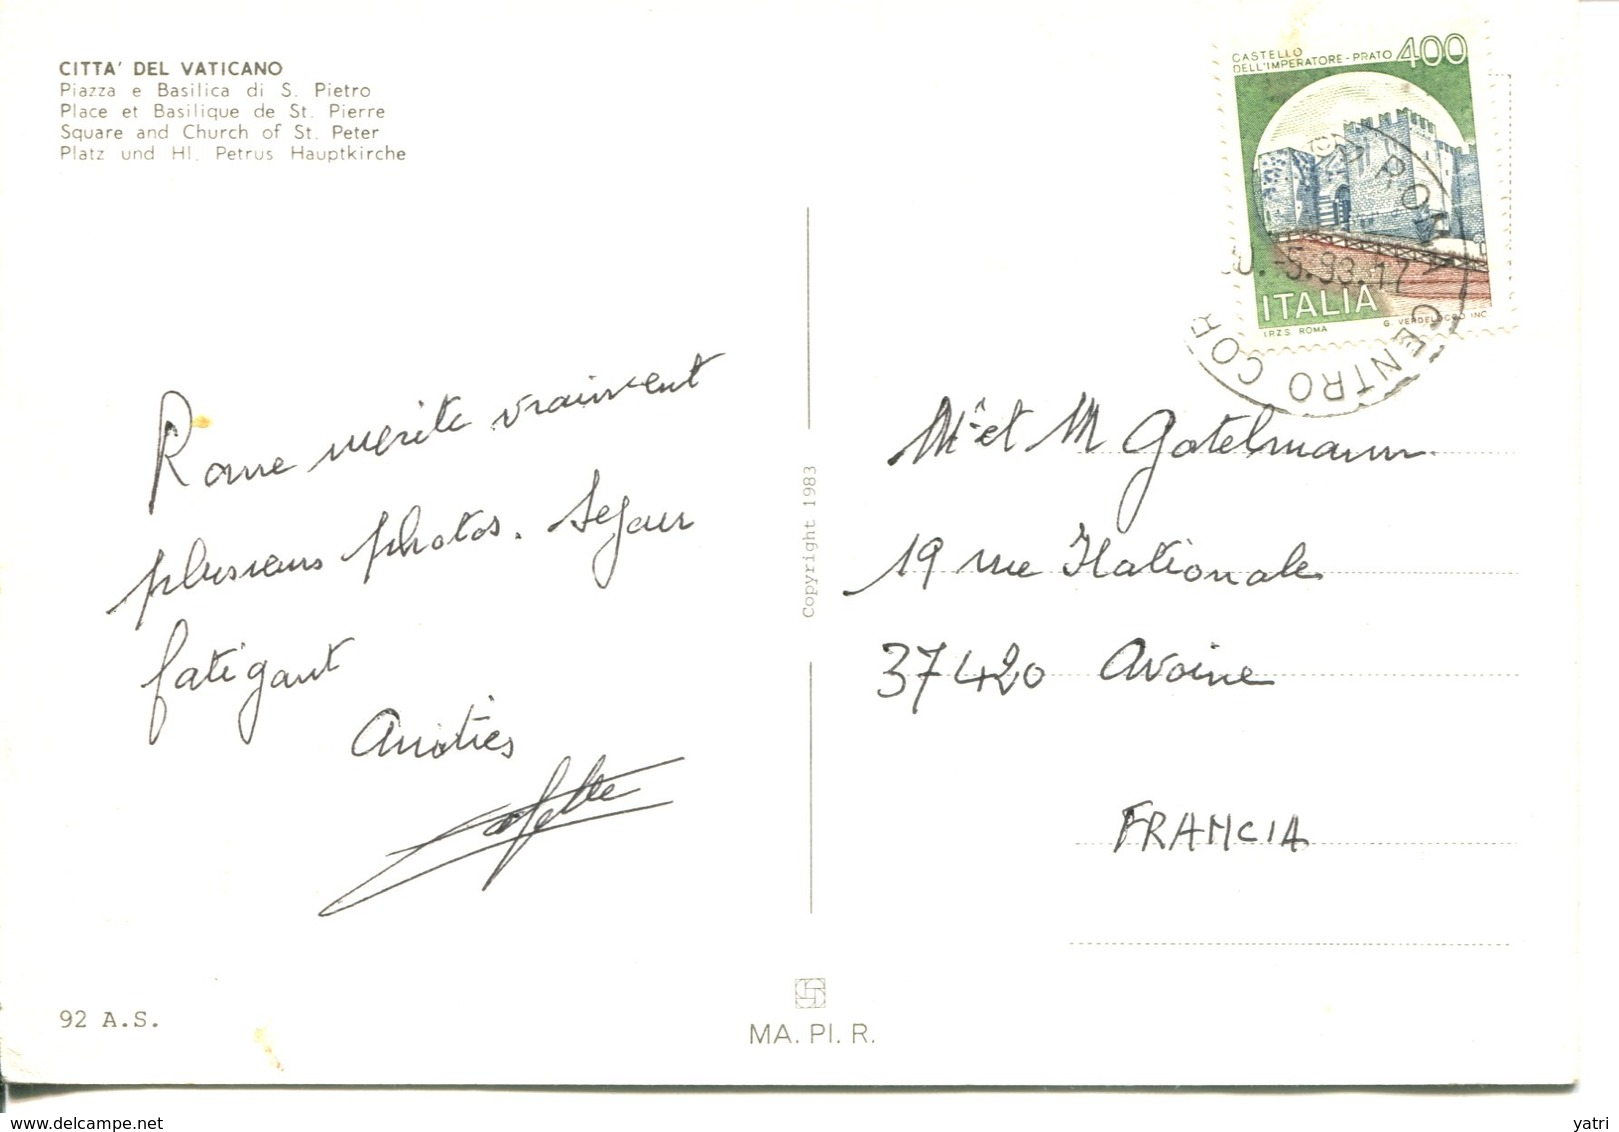 CITTA' DEL VATICANO
Piazza e Basilica di S. Pietro
Place et Basilique de St. Pierre
Square and Church of St. Peter
Platz und Hl. Petrus Hauptkirche
CASTELLO
DELL'IMPERATORE - PRATO 400
ITALIA
I.P.Z.S. ROMA G. VERDELOCCO INC.
ROMA CENTRO COR
-5.93.17
Rome mérite vraiment
plusieurs photos. Séjour
fatigant
Amitiés
Copyright 1983
Mme et M Gatelmann
19 rue Nationale
37420 Avoine
FRANCIA
92 A.S.
MA. PI. R.
www.delcampe.net
yatri